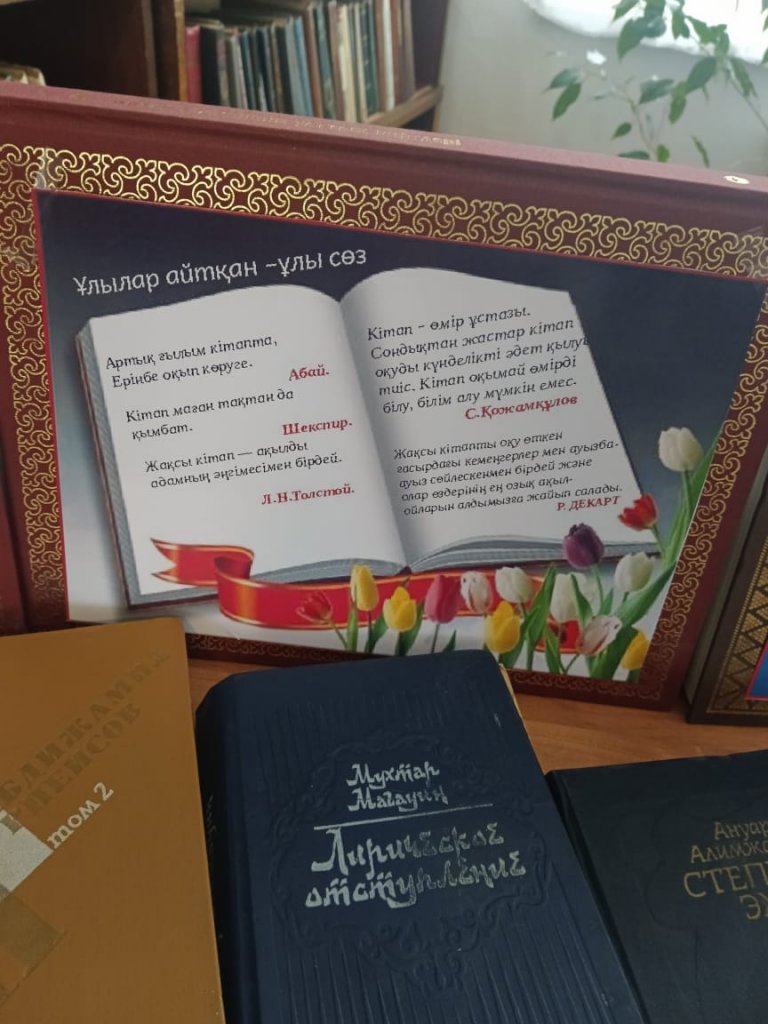 Ұлылар айтқан –ұлы сөз
Артық ғылым кітапта,
Ерінбе оқып көруге.
Абай.
Кітап маған тақтан да
қымбат.
Шекспир.
Жақсы кітап — ақылды
адамның әңгімесімен бірдей.
Л.Н.Толстой.
Кітап – өмір ұстазы.
Сондықтан жастар кітап
оқуды күнделікті әдет қылу
тиіс. Кітап оқымай өмірді
білу, білім алу мүмкін емес.
С.Қожамқұлов
Жақсы кітапты оқу өткен
ғасырдағы кемеңгерлер мен ауызба-
ауыз сөйлескенмен бірдей және
олар өздерінің ең озық ақыл-
ойларын алдымызға жайып салады.
Р. ДЕКАРТ
том 2
Мухтар
Магауин
Лирическое
отступление
Ануар
Алимж
СТЕП
Э